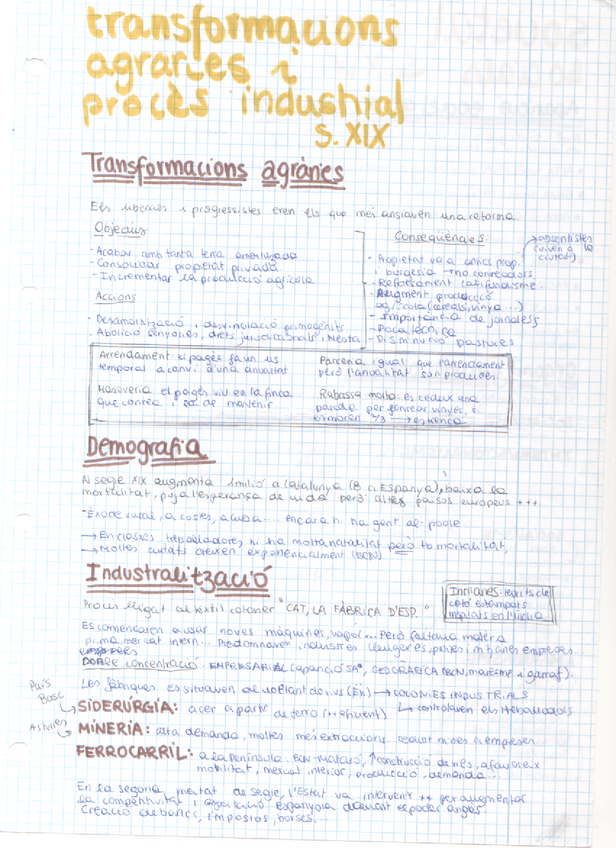 transformacions
agraries i
procès industrial
S. XIX
Transformacions agràries
Els liberals i progressistes eren els que més ansiaven una reforma
Objectius
- Acabar amb tanta terra amortitzada
- Consolidar propietat privada
- Incrementar la producció agrícola
Accions
- Desamortització i desvinculació primogènits
- Abolició senyories, drets jurisdiccionals i Mesta
Conseqüències:
→ absentistes
(viuen a la
ciutat)
- Propietat va a antics prop.
i burgesia → no conreadors.
- Reforçament latifundisme
- Augment producció
agrícola (cereals, vinya...)
- Importància de jornalers
- Poca tècnica
- Disminució pastures
Arrendament: el pagès fa un ús
temporal a canvi d'una anualitat
Masoveria: el pagès viu en la finca
que conrea i ha de mantenir
Parceria: igual que l'arrendament
però l'anualitat són productes.
Rabassa morta: es cedeix una
parcel·la per conrear vinyes, si
moren 2/3 → s'extingeix
Demografia
Al segle XIX augmenta 1 milió a Catalunya (8 a Espanya), baixa la
mortalitat, puja l'esperança de vida però altres països europeus +++
Èxode rural, a costes, acaba... Encara hi ha gent al poble
→ En classes treballadores hi ha molta natalitat però tb mortalitat,
→ Moltes ciutats creixen exponencialment (BCN)
Industralització
Procés lligat al tèxtil cotoner "CAT, LA FÀBRICA D'ESP."
Indianes: teixits de
cotó estampats
inspirats en l'Índia
Es comencaren a usar noves màquines, vapor... Però faltava matèria
prima, mercat intern... Predominaven indústries lleugeres, petites i mitjanes empreses...
Doble concentració: EMPRESARIAL, GEOGRÀFICA (BCN, maresme i garraf).
Les fàbriques es situaven al voltant de rius → COLÒNIES INDUSTRIALS
↳ controlaven els treballadors
País
Basc
SIDERÚRGIA: acer a partir de ferro (++ eficient)
Astúries
MINERIA: alta demanda, moltes més extraccions
FERROCARRIL: a la península: BCN-Mataró, ↑ construcció de més, afavoreix
mobilitat, mercat interior, producció, demanda...
En la segona meitat de segle, l'Estat va intervenir ++ per augmentar
la competitivitat i exportació espanyola
Creació de bancs, impostos, borses...